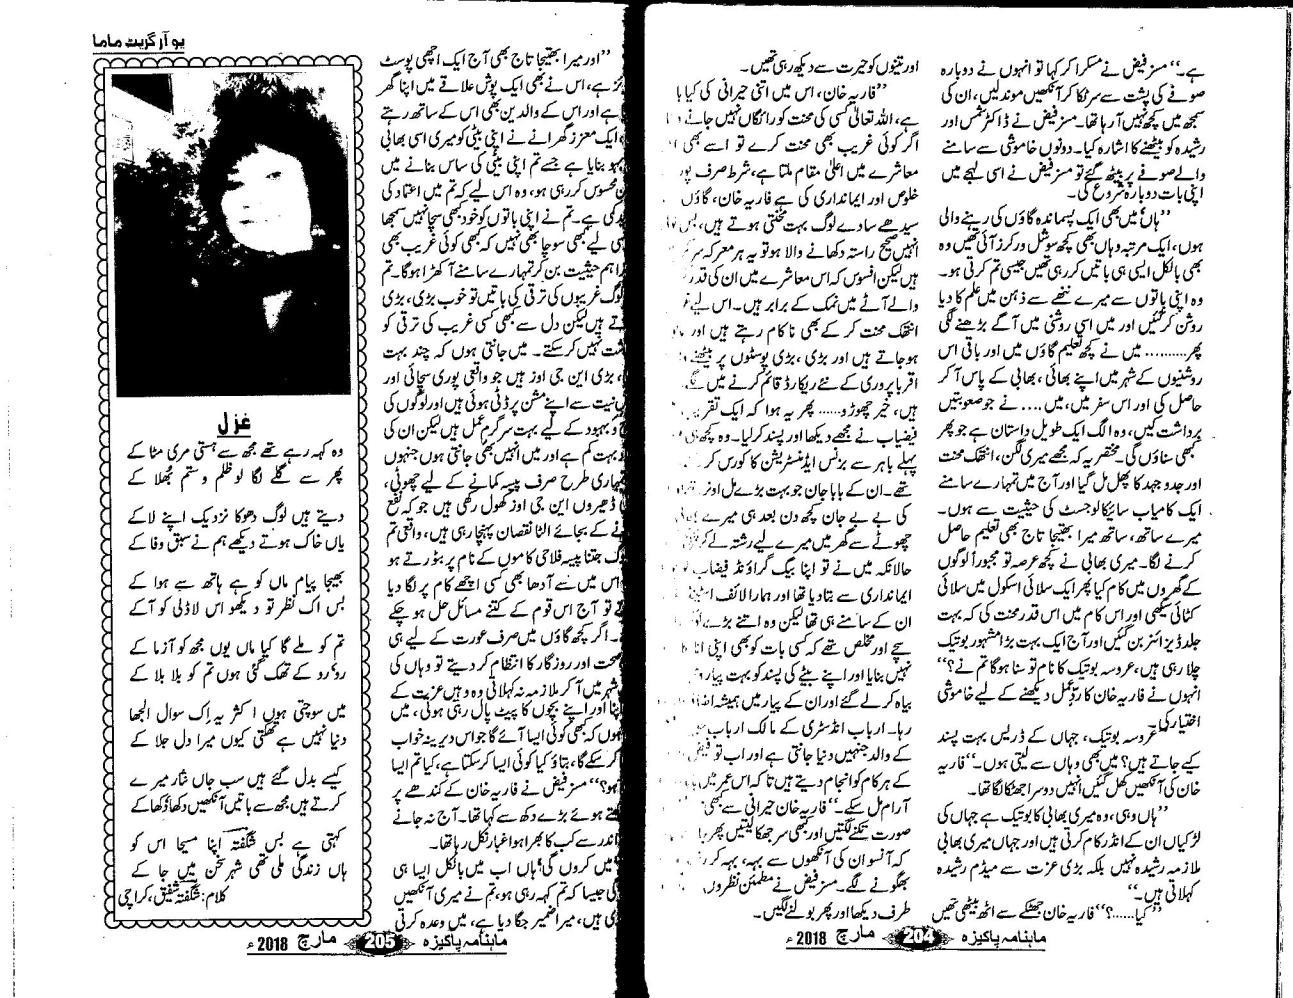 ہے۔‘‘ مسز فیض نے مسکرا کر کہا تو انہوں نے دوبارہ
صوفے کی پشت سے سر ٹکا کر آنکھیں موند لیں، ان کی
سمجھ میں کچھ نہیں آ رہا تھا۔ مسز فیض نے ڈاکٹر شمس اور
رشیدہ کو بیٹھنے کا اشارہ کیا۔ دونوں خاموشی سے سامنے
والے صوفے پر بیٹھ گئے تو مسز فیض نے اسی لہجے میں
اپنی بات دوبارہ شروع کی۔
’’ہاں میں بھی ایک پسماندہ گاؤں کی رہنے والی
ہوں، ایک مرتبہ وہاں بھی کچھ سوشل ورکرز آئی تھیں وہ
بھی بالکل ایسی ہی باتیں کر رہی تھیں جیسی تم کرتی ہو۔
وہ اپنی باتوں سے میرے ننھے سے ذہن میں علم کا دیا
روشن کر گئیں اور میں اسی روشنی میں آگے بڑھنے لگی
پھر......... میں نے کچھ تعلیم گاؤں میں اور باقی اس
روشنیوں کے شہر میں اپنے بھائی، بھابی کے پاس آ کر
حاصل کی اور اس سفر میں، میں .... نے جو صعوبتیں
برداشت کیں، وہ الگ ایک طویل داستان ہے جو پھر
کبھی سناؤں گی۔ مختصر یہ کہ مجھے میری لگن، انتھک محنت
اور جدوجہد کا پھل مل گیا اور آج میں تمہارے سامنے
ایک کامیاب سائیکالوجسٹ کی حیثیت سے ہوں۔
میرے ساتھ، ساتھ میرا بھتیجا تاج بھی تعلیم حاصل
کرنے لگا۔ میری بھابی نے کچھ عرصہ تو مجبوراً لوگوں
کے گھروں میں کام کیا پھر ایک سلائی اسکول میں سلائی
کٹائی سیکھی اور اس کام میں اس قدر محنت کی کہ بہت
جلد ڈیزائنر بن گئیں اور آج ایک بہت بڑا مشہور بوتیک
چلا رہی ہیں، عروسہ بوتیک کا نام تو سنا ہوگا تم نے؟‘‘
انہوں نے فاریہ خان کا ردِعمل دیکھنے کے لیے خاموشی
اختیار کی۔
’’عروسہ بوتیک، جہاں کے ڈریس بہت پسند
کیے جاتے ہیں؟ میں بھی وہاں سے لیتی ہوں۔‘‘ فاریہ
خان کی آنکھیں کھل گئیں انہیں دوسرا جھٹکا لگا تھا۔
’’ہاں وہی، وہ میری بھابی کا بوتیک ہے جہاں کی
لڑکیاں ان کے انڈر کام کرتی ہیں اور جہاں میری بھابی
ملازمہ رشیدہ نہیں بلکہ بڑی عزت سے میڈم رشیدہ
کہلاتی ہیں۔‘‘
’’کیا......؟‘‘ فاریہ خان جھٹکے سے اٹھ بیٹھی تھیں
اور تینوں کو حیرت سے دیکھ رہی تھیں۔
’’فاریہ خان، اس میں اتنی حیرانی کی کیا با
ہے، اللہ تعالیٰ کسی کی محنت کو رائگاں نہیں جانے د
اگر کوئی غریب بھی محنت کرے تو اسے بھی
معاشرے میں اعلیٰ مقام ملتا ہے، شرط صرف پور
خلوص اور ایمانداری کی ہے فاریہ خان، گاؤں
سیدھے سادے لوگ بہت محنتی ہوتے ہیں، بس
انہیں صحیح راستہ دکھانے والا ہو تو یہ ہر معرکہ سر
ہیں لیکن افسوس کہ اس معاشرے میں ان کی قدر
والے آٹے میں نمک کے برابر ہیں۔ اس لیے
انتھک محنت کر کے بھی ناکام رہتے ہیں اور
ہو جاتے ہیں اور بڑی، بڑی پوسٹوں پر بیٹھنے
اقربا پروری کے نئے ریکارڈ قائم کرنے میں
ہیں، خیر چھوڑو...... پھر یہ ہوا کہ ایک تقریب
فیضیاب نے مجھے دیکھا اور پسند کر لیا۔ وہ کچھ ہی
پہلے باہر سے بزنس ایڈمنسٹریشن کا کورس کر
تھے۔ ان کے بابا جان جو بہت بڑے مل اونر
کی بے بے جان کچھ دن بعد ہی میرے
چھوٹے سے گھر میں میرے لیے رشتہ لے کر
حالانکہ میں نے تو اپنا بیک گراؤنڈ فیضیاب
ایمانداری سے بتا دیا تھا اور ہمارا لائف
ان کے سامنے ہی تھا لیکن وہ اتنے بڑے
سچے اور مخلص تھے کہ کسی بات کو بھی اپنی انا
نہیں بنایا اور اپنے بیٹے کی پسند کو بہت پیار
بیاہ کر لے گئے اور ان کے پیار میں ہمیشہ
رہا۔ ارباب انڈسٹری کے مالک ارباب
کے والد جنہیں دنیا جانتی ہے اور اب تو فیض
کے ہر کام کو انجام دیتے ہیں تا کہ اس عمر میں
آرام مل سکے۔‘‘ فاریہ خان حیرانی سے کبھی
صورت تکنے لگتیں اور کبھی سر جھکا لیتیں پھر
کہ آنسو ان کی آنکھوں سے بہہ، بہہ کر
بھگونے لگے۔ مسز فیض نے مطمئن نظروں
طرف دیکھا اور پھر بولنے لگیں۔
ماہنامہ پاکیزہ 204 مارچ 2018ء
’’اور میرا بھتیجا تاج بھی آج ایک اچھی پوسٹ
ئز ہے، اس نے بھی ایک پوش علاقے میں اپنا گھر
ہے اور اس کے والدین بھی اس کے ساتھ رہتے
، ایک معزز گھرانے نے اپنی بیٹی کو میری اسی بھابی
بہو بنایا ہے جسے تم اپنی بیٹی کی ساس بنانے میں
ن محسوس کر رہی ہو، وہ اس لیے کہ تم میں اعتماد کی
کمی ہے۔ تم نے اپنی باتوں کو خود بھی سچا نہیں سمجھا
سی لیے کبھی سوچا بھی نہیں کہ کبھی کوئی غریب بھی
اہم حیثیت بن کر تمہارے سامنے آ کھڑا ہوگا۔ تم
لوگ غریبوں کی ترقی کی باتیں تو خوب بڑی، بڑی
تے ہیں لیکن دل سے کبھی کسی غریب کی ترقی کو
شت نہیں کر سکتے۔ میں جانتی ہوں کہ چند بہت
، بڑی این جی اوز ہیں جو واقعی پوری سچائی اور
نیت سے اپنے مشن پر ڈٹی ہوئی ہیں اور لوگوں کی
و بہبود کے لیے بہت سرگرم عمل ہیں لیکن ان کی
بہت کم ہے اور میں انہیں بھی جانتی ہوں جنہوں
تمہاری طرح صرف پیسہ کمانے کے لیے چھوٹی،
ڈھیروں این جی اوز کھول رکھی ہیں جو کہ نفع
نے کے بجائے الٹا نقصان پہنچا رہی ہیں، واقعی تم
گ جتنا پیسہ فلاحی کاموں کے نام پر بٹورتے ہو
اس میں سے آدھا بھی کسی اچھے کام پر لگا دیا
ئے تو آج اس قوم کے کتنے مسائل حل ہو چکے
۔ اگر کچھ گاؤں میں صرف عورت کے لیے ہی
صحت اور روزگار کا انتظام کر دیتے تو وہاں کی
شہر میں آ کر ملازمہ نہ کہلاتی وہ وہیں عزت کے
پنا اور اپنے بچوں کا پیٹ پال رہی ہوتی، میں
ہوں کہ کبھی کوئی ایسا آئے گا جو اس دیرینہ خواب
کر سکے گا، بتاؤ کیا کوئی ایسا کر سکتا ہے، کیا تم ایسا
ہو؟‘‘ مسز فیض نے فاریہ خان کے کندھے پر
کھتے ہوئے بڑے دکھ سے کہا تھا۔ آج نہ جانے
اندر سے کب کا بھرا ہوا غبار نکل رہا تھا۔
’’میں کروں گی! ہاں اب میں بالکل ایسا ہی
گی جیسا کہ تم کہہ رہی ہو، تم نے میری آنکھیں
دی ہیں، میرا ضمیر جگا دیا ہے، میں وعدہ کرتی
یو آر گریٹ ماما
غزل
وہ کہہ رہے تھے مجھ سے ہستی مری مٹا کے
پھر سے گلے لگا لو ظلم و ستم بھلا کے
دیتے ہیں لوگ دھوکا نزدیک اپنے لا کے
یاں خاک ہوتے دیکھے ہم نے سبق وفا کے
بھیجا پیام ماں کو ہے ہاتھ سے ہوا کے
بس اک نظر تو دیکھو اس لاڈلی کو آ کے
تم کو ملے گا کیا ماں یوں مجھ کو آزما کے
رو، رو کے تھک گئی ہوں تم کو بلا بلا کے
میں سوچتی ہوں اکثر یہ اِک سوال الجھا
دنیا نہیں ہے تھکتی کیوں میرا دل جلا کے
کیسے بدل گئے ہیں سب جاں نثار میرے
کرتے ہیں مجھ سے باتیں آنکھیں دکھا دکھا کے
کہتی ہے بس شگفتہ اپنا مسیحا اس کو
ہاں زندگی ملی تھی شہر سخن میں جا کے
کلام: شگفتہ شفیق، کراچی
ماہنامہ پاکیزہ 205 مارچ 2018ء